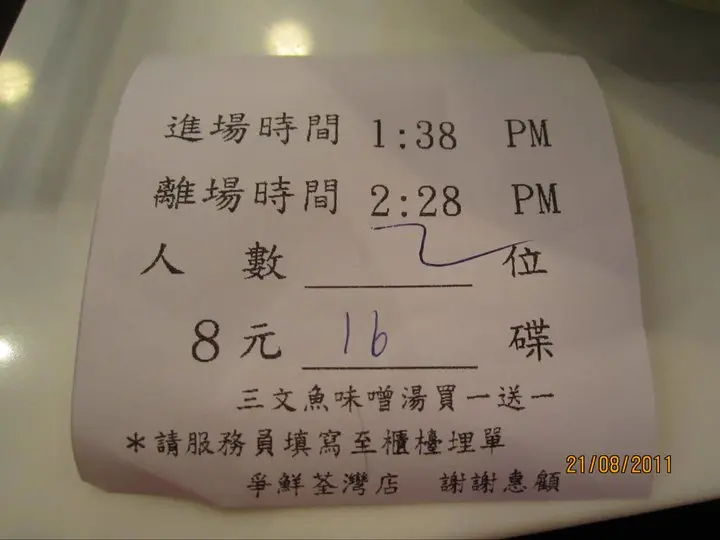 進場時間 1:38 PM
離場時間 2:28 PM
人 數 2 位
8元 16 碟
三文魚味噌湯買一送一
*請服務員填寫至櫃檯埋單
爭鮮荃灣店 謝謝惠顧
21/08/2011